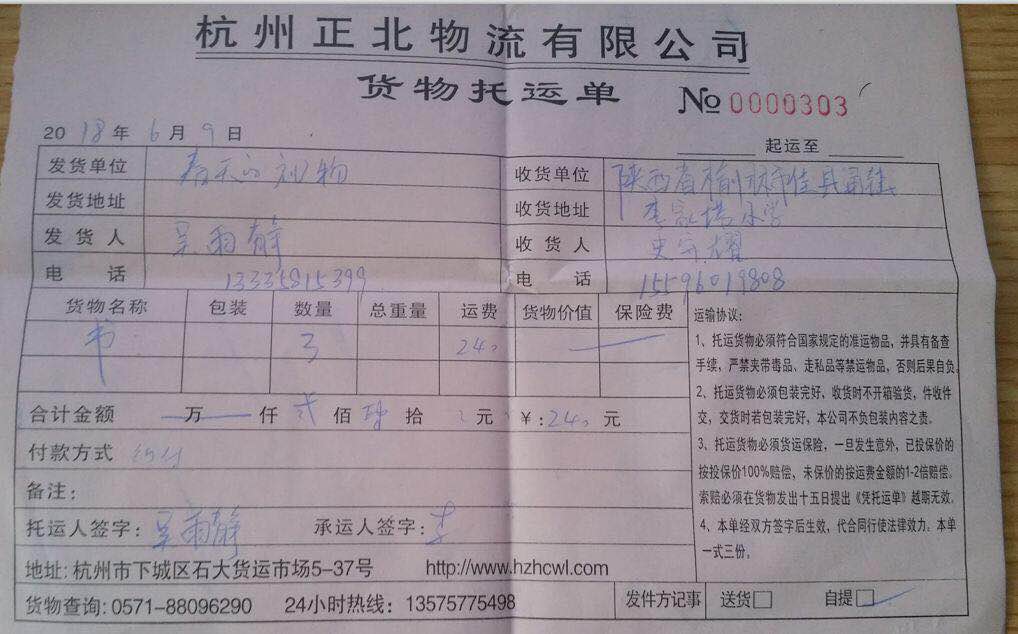 杭州正北物流有限公司
货物托运单
№ 0000303
2018年6月9日
起运至
发货单位 春天的礼物
收货单位 陕西省榆林市佳县通镇
发货地址
收货地址 小学
发货人 吴雨静
收货人 史
电话 13335815399
电话 15596019808
货物名称 包装 数量 总重量 运费 货物价值 保险费
书 3 240
合计金额 万 仟 贰 佰 肆 拾 元 ￥:240 元
付款方式
备注:
托运人签字: 吴雨静 承运人签字: 李
地址: 杭州市下城区石大货运市场5-37号 http://www.hzhcwl.com
货物查询: 0571-88096290 24小时热线: 13575775498
运输协议:
1、托运货物必须符合国家规定的准运物品，并具有备查
手续，严禁夹带毒品、走私品等禁运物品，否则后果自负。
2、托运货物必须包装完好，收货时不开箱验货，件收件
交，交货时若包装完好，本公司不负包装内容之责。
3、托运货物必须货运保险，一旦发生意外，已投保价的
按投保价100%赔偿，未保价的按运费金额的1-2倍赔偿。
索赔必须在货物发出十五日提出《凭托运单》越期无效。
4、本单经双方签字后生效，代合同行使法律效力。本单
一式三份。
发件方记事 送货□ 自提□